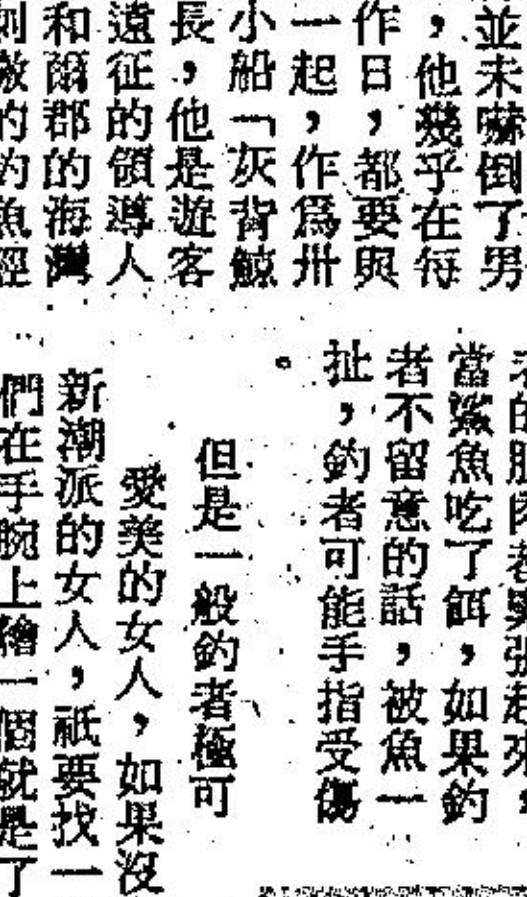 並未嚇倒了男
，他幾乎在每
作日，都要與
一起，作爲卅
小船「灰背鯨
長，他是遊客
遠征的領導人
和爾郡的海灣
刺激的釣魚經
來，
當鯊魚吃了餌，如果釣
者不留意的話，被魚一
扯，釣者可能手指受傷
。
但是一般釣者極可
愛美的女人，如果沒
新潮派的女人，祇要找一
們在手腕上繪一個就是了